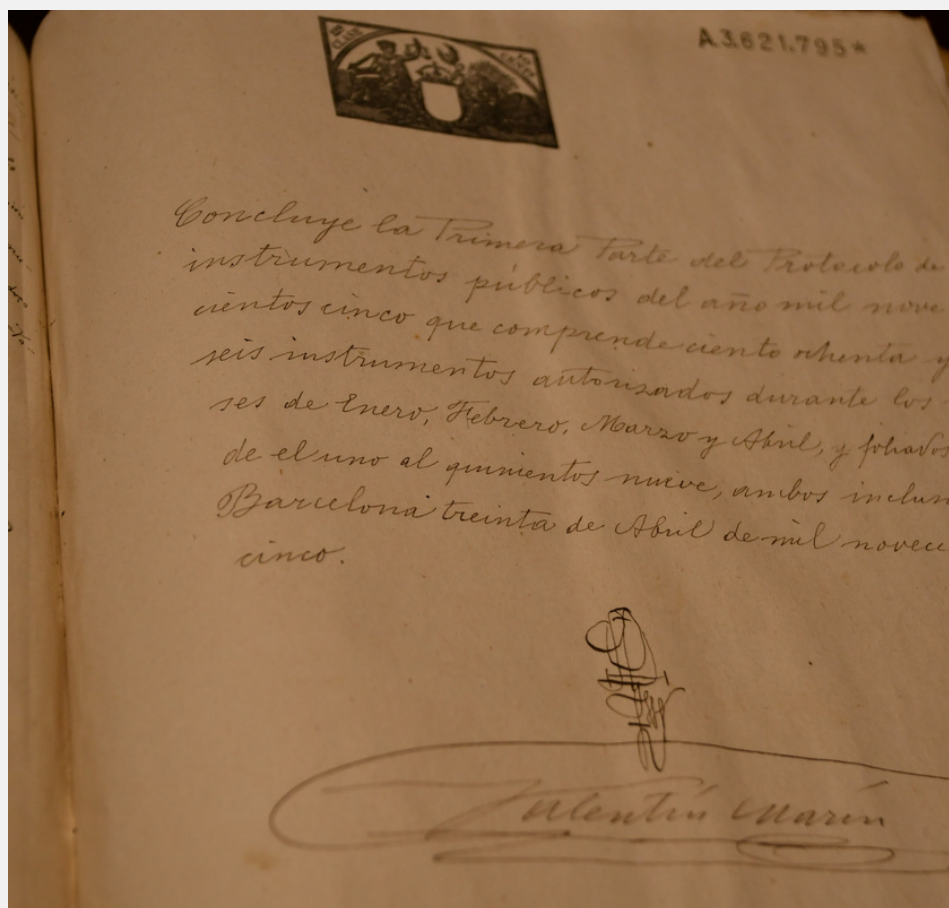 A3.621.795*
Concluye la Primera Parte del Protocolo de
instrumentos públicos del año mil nove
cientos cinco que comprende ciento ochenta y
seis instrumentos autorizados durante los
ses de Enero, Febrero, Marzo y Abril, y foliados
de el uno al quinientos nueve, ambos inclus
Barcelona treinta de Abril de mil novec
cinco.
Valentín Marín